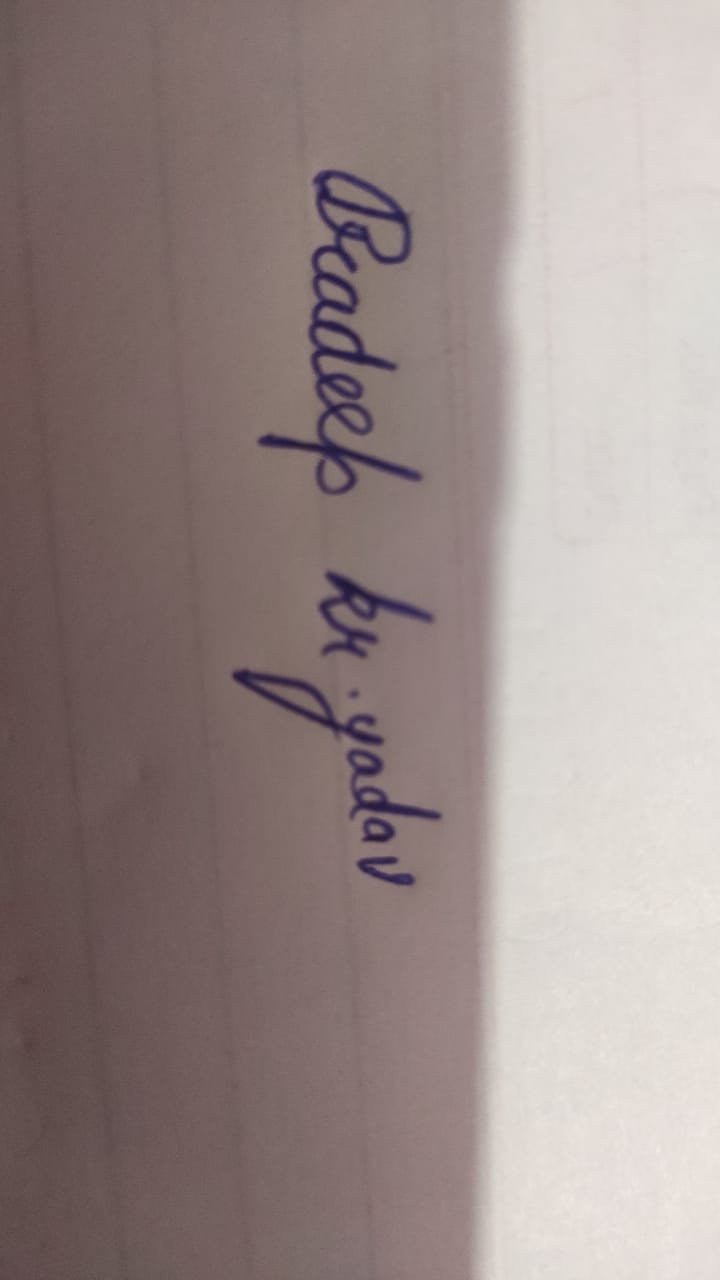 Pradeep kr. yadav